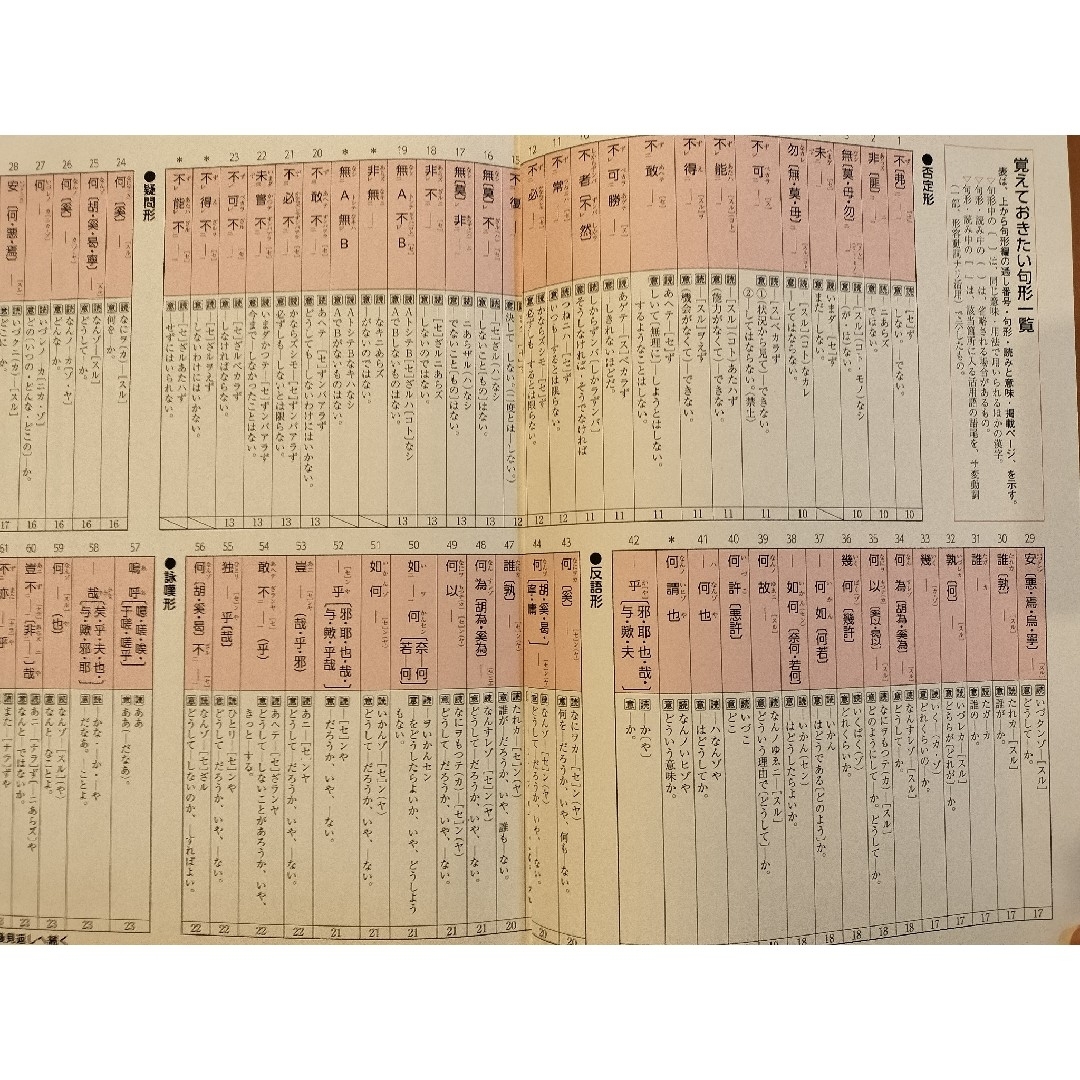 覚えておきたい句形一覧
表は、上から句形編の通し番号、句形・読みと意味・掲載ページ、を示す。
▽句形中の〔 〕は、同じ意味・用法で用いられるほかの漢字。
▽句形・読み中の( )は、省略される場合があるもの。
●否定形
1 不〔弗〕― 読 ―[セ]ず 意 ―しない。―でない。 10
2 非〔匪〕― 読 ―ニあらズ 意 ―ではない。 10
3 無〔莫・毋・勿〕― 読 ―[スル](コト・モノ)なシ 意 ―(が・は)ない。 10
未― 読 いまダ―[セ]ず 意 まだ―しない。
勿〔無・莫・毋〕― 読 ―[スル](コト)なカレ 意 ―してはならない。 10
不可― 読 ―[ス]ベカラず 意 ①(状況から見て)できない。②―してはならない。(禁止) 11
不能― 読 ―[スル](コト)あたハず 意 (能力がなくて)できない。 11
不得― 読 ―[スル]ヲえず 意 (機会がなくて)できない。 11
不敢― 読 あヘテ―[セ]ず 意 しいて(無理に)―しようとはしない。―するようなことはしない。 11
不可勝― 読 あゲテ―[ス]ベカラず 意 ―しきれないほどだ。 11
不者〔不然〕 読 しからずンバ〔しカラずンバ〕 意 そうしなければ・そうでなければ 11
11 不常― 読 つねニハ―[セ]ず 意 いつも―するとは限らない。 12
12 不必― 読 かならズシモ―[セ]ず 意 必ずしも―するとは限らない。 12
15 不復― 意 決して―しない(二度とは―しない。) 12
16 無〔莫〕不― 読 ―[セ]ざルハなシ 意 ―しないこと〔もの〕はない。 13
17 無〔莫〕非― 読 ―ニあらザル(ハ)なシ 意 ―でないこと〔もの〕はない。 13
18 非不― 読 ―[セ]ざルニあらズ 意 ―しないのではない。 13
19 無A不B 読 AトシテB[セ]ざルハ[コト]なシ 意 AでBしないものはない。 13
＊ 非無― 読 ―なキニあらズ 意 ―がないのではない。
＊ 無A無B 読 AトシテBなキハなシ 意 AでBがないものはない。
20 不敢不― 読 あヘテ―[セ]ずンバアラず 意 どうしても―しないわけにはいかない。 13
21 不必不― 読 かならズシモ―[セ]ずンバアラず 意 必ずしも―しないとは限らない。 13
22 未嘗不― 読 いまダかつテ―[セ]ずンバアラず 意 今まで―しなかったことはない。 13
23 不可不― 読 ―[セ]ざルベカラず 意 ―しなければならない。 13
＊ 不得不― 読 ―[セ]ざルヲえず 意 ―しないわけにはいかない。
＊ 不能不― 読 ―[セ]ざルあたハず 意 ―せずにはいられない。
●疑問形
24 何― 読 なにヲ(カ)―[スル] 意 何を―か。 16
25 何〔胡・奚・曷・寧〕― 読 なんゾ―[スル] 意 どうして―か。 16
26 何〔奚〕― 読 なんノ―カ(ゾ・ヤ) 意 どんな―か。 16
27 何― 読 いづレノ―カ(ニカ・ゾ) 意 どの〔いつの・どんな・どこの〕―か。 16
28 安〔何・悪・焉〕― 読 いづクニ(カ)―[スル] 意 どこに―か。 17
29 安〔悪・焉・烏・寧〕― 読 いづクンゾ―[スル] 意 どうして―か。 17
30 誰〔孰〕― 読 たれカ―[スル] 意 誰が―か。 17
31 誰― 読 たガ―カ 意 誰の―か。 17
32 孰〔何〕― 読 いづレカ― 意 どちらが〔どれが〕―か。 17
33 幾― 読 いく―(カ・ゾ) 意 どれくらいの―か。 17
34 何為〔胡為・奚為〕― 読 なんすレゾ―[スル] 意 どうして―か。 18
35 何以〔奚以・曷以〕― 読 なにヲもつテ(カ)―[スル] 意 どのようにして―か。どうして―か。 18
36 幾何〔幾許〕 読 いくばくゾ 意 どれくらいか。 18
37 ―何如〔何若〕 読 ―ハいかん 意 ―はどうである〔どのよう〕か。 18
38 ―如何〔奈何・若何〕 読 ―いかんセン 意 ―はどうしたらよいか。 18
39 何故― 読 なんノゆゑニ―[スル] 意 どういう理由で〔どうして〕―か。 19
40 何許〔悪許〕 読 いづこ 意 どこ
41 ―何也 読 ―ハなんゾや 意 ―はどうしてか。
＊ 何謂也 読 なんノいヒゾや 意 どういう意味か。
42 ―乎〔邪・耶・也・哉・与・歟・夫〕 読 ―か(や)。 意 ―か。
●反語形
43 何〔奚〕― 読 なにヲカ―[セ]ン(ヤ) 意 何を―だろうか、いや、何も―ない。 20
44 何〔胡・奚・曷・寧・庸〕― 読 なんゾ―[セ]ン(ヤ) 意 どうして―だろうか、いや、―ない。 20
47 誰〔孰〕― 読 たれカ―[セ]ン(ヤ) 意 誰が―だろうか、いや、誰も―ない。 20
48 何為〔胡為・奚為〕― 読 なんすレゾ―[セ]ン(ヤ) 意 どうして―だろうか、いや、―ない。 21
49 何以― 読 なにヲもつテ(カ)―[セ]ン(ヤ) 意 どうして―だろうか、いや、―ない。 21
50 如―何〔奈―何・若―何〕 読 ―ヲいかんセン 意 ―をどうしたらよいか、いや、どうしようもない。 21
51 如何― 読 いかんゾ―[セ]ン(ヤ) 意 どうして―だろうか、いや、―ない。 21
52 ―乎〔邪・耶・也・哉・与・歟・乎哉〕 読 ―[セ]ンや 意 ―だろうか、いや、―ない。 21
53 豈―(哉・乎・邪) 読 あニ―[セ]ンや 意 どうして―だろうか、いや、―ない。 22
54 敢不―(乎) 読 あヘテ―[セ]ざランヤ 意 どうして―しないことがあろうか、いや、きっと―する。 22
55 独―乎〔哉〕 読 ひとリ―[セ]ンや 意 どうして―だろうか、いや、―ない。 22
56 何〔胡・奚・曷〕不― 読 なんゾ―[セ]ざル 意 どうして―しないのか、―すればよい。 22
●詠嘆形
57 嗚呼〔噫・嗟・唉・于嗟・嗟乎〕 読 ああ 意 ああ(―だなあ)。 23
58 ―哉〔矣・乎・夫・也・与・歟・邪・耶〕 読 ―かな・―か・―や 意 ―だなあ。―ことよ。 23
59 何―(也) 読 なんゾ―[スル](や) 意 なんと―なことよ。 23
60 豈不〔非〕―哉 読 あニ―[ナラ]ず〔―ニあらズ〕や 意 なんと―ではないか。 23
61 不亦―乎 読 また―[ナラ]ずや